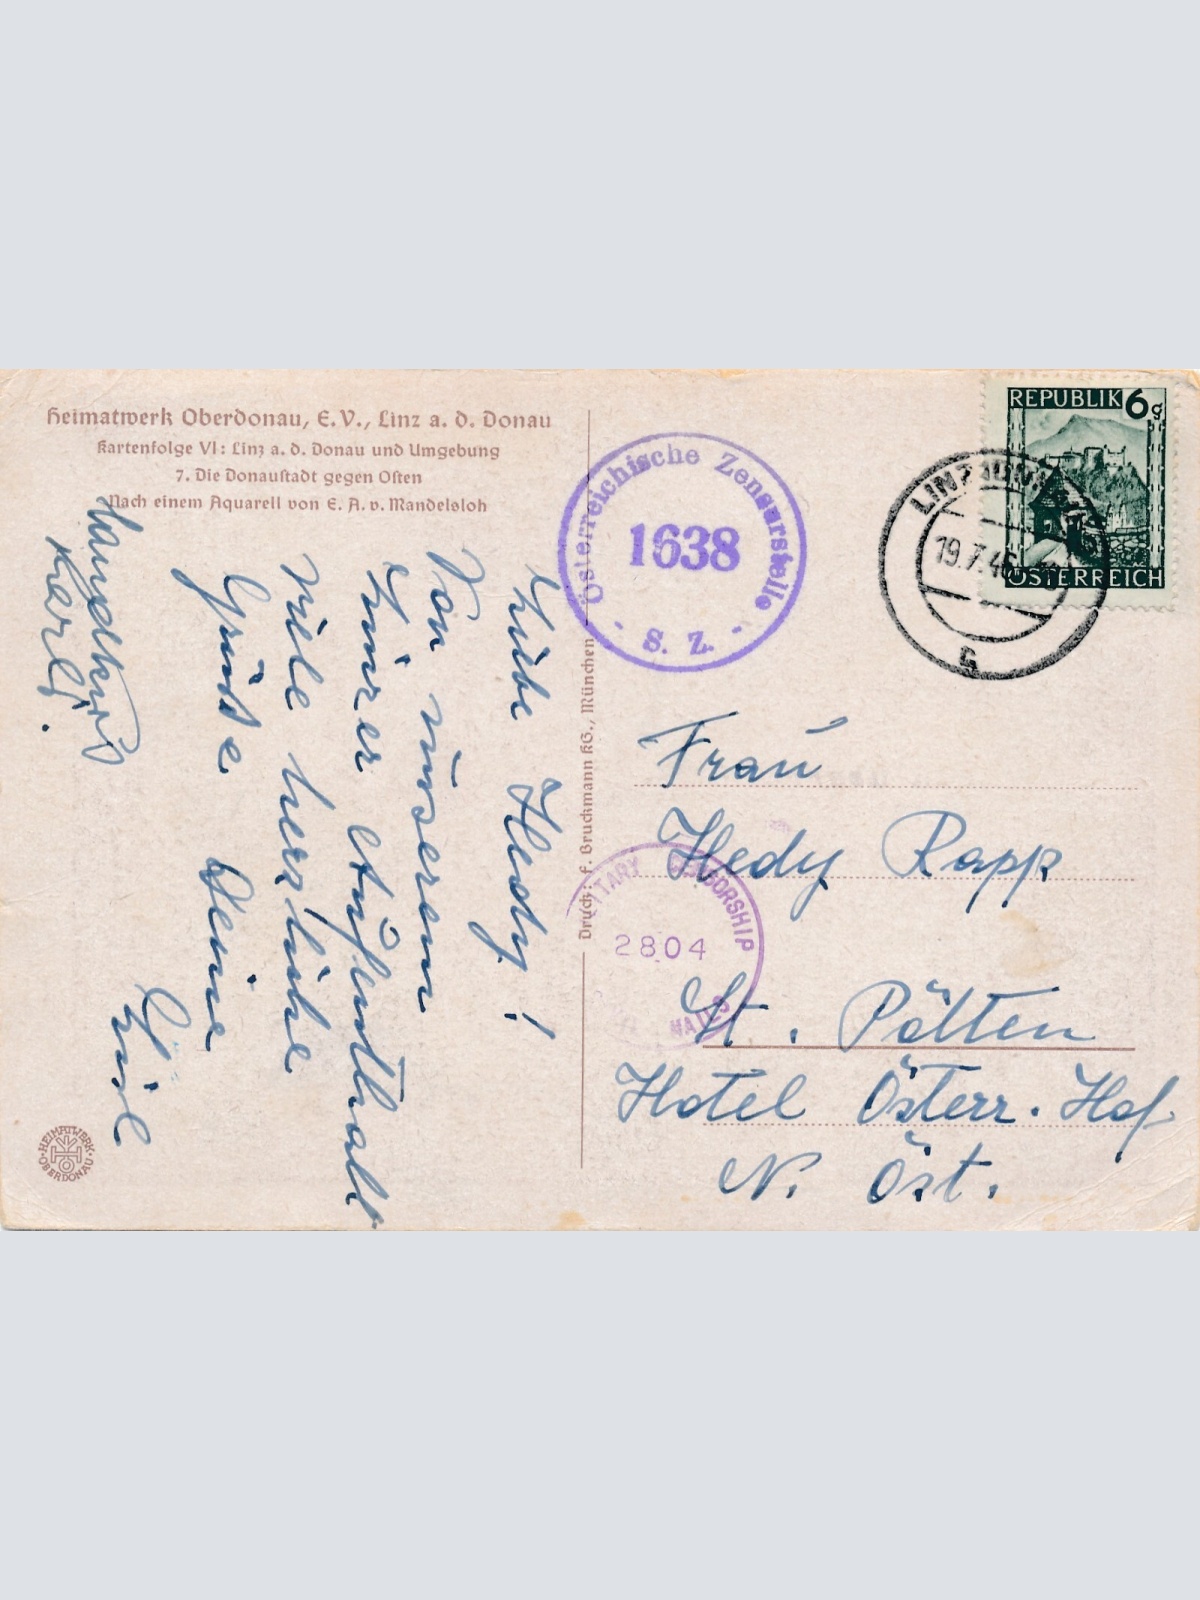 Heimatwerk Oberdonau, E.V., Linz a. d. Donau
Kartenfolge VI: Linz a. d. Donau und Umgebung
7. Die Donaustadt gegen Osten
Nach einem Aquarell von E. A. v. Mandelsloh
Liebe Hedy!
Von unserem
kurzer Aufenthalt
viele herzliche
Grüße Deine
Handkuß
Karl.
HEIMATWERK OBERDONAU
Druck: F. Bruckmann KG., München
Österreichische Zensurstelle
1638
S. Z.
REPUBLIK 6g
ÖSTERREICH
LINZ
19.7.46
MILITARY CENSORSHIP
2804
MAILS
Frau
Hedy Rapp
St. Pölten
Hotel Österr. Hof
N. Öst.